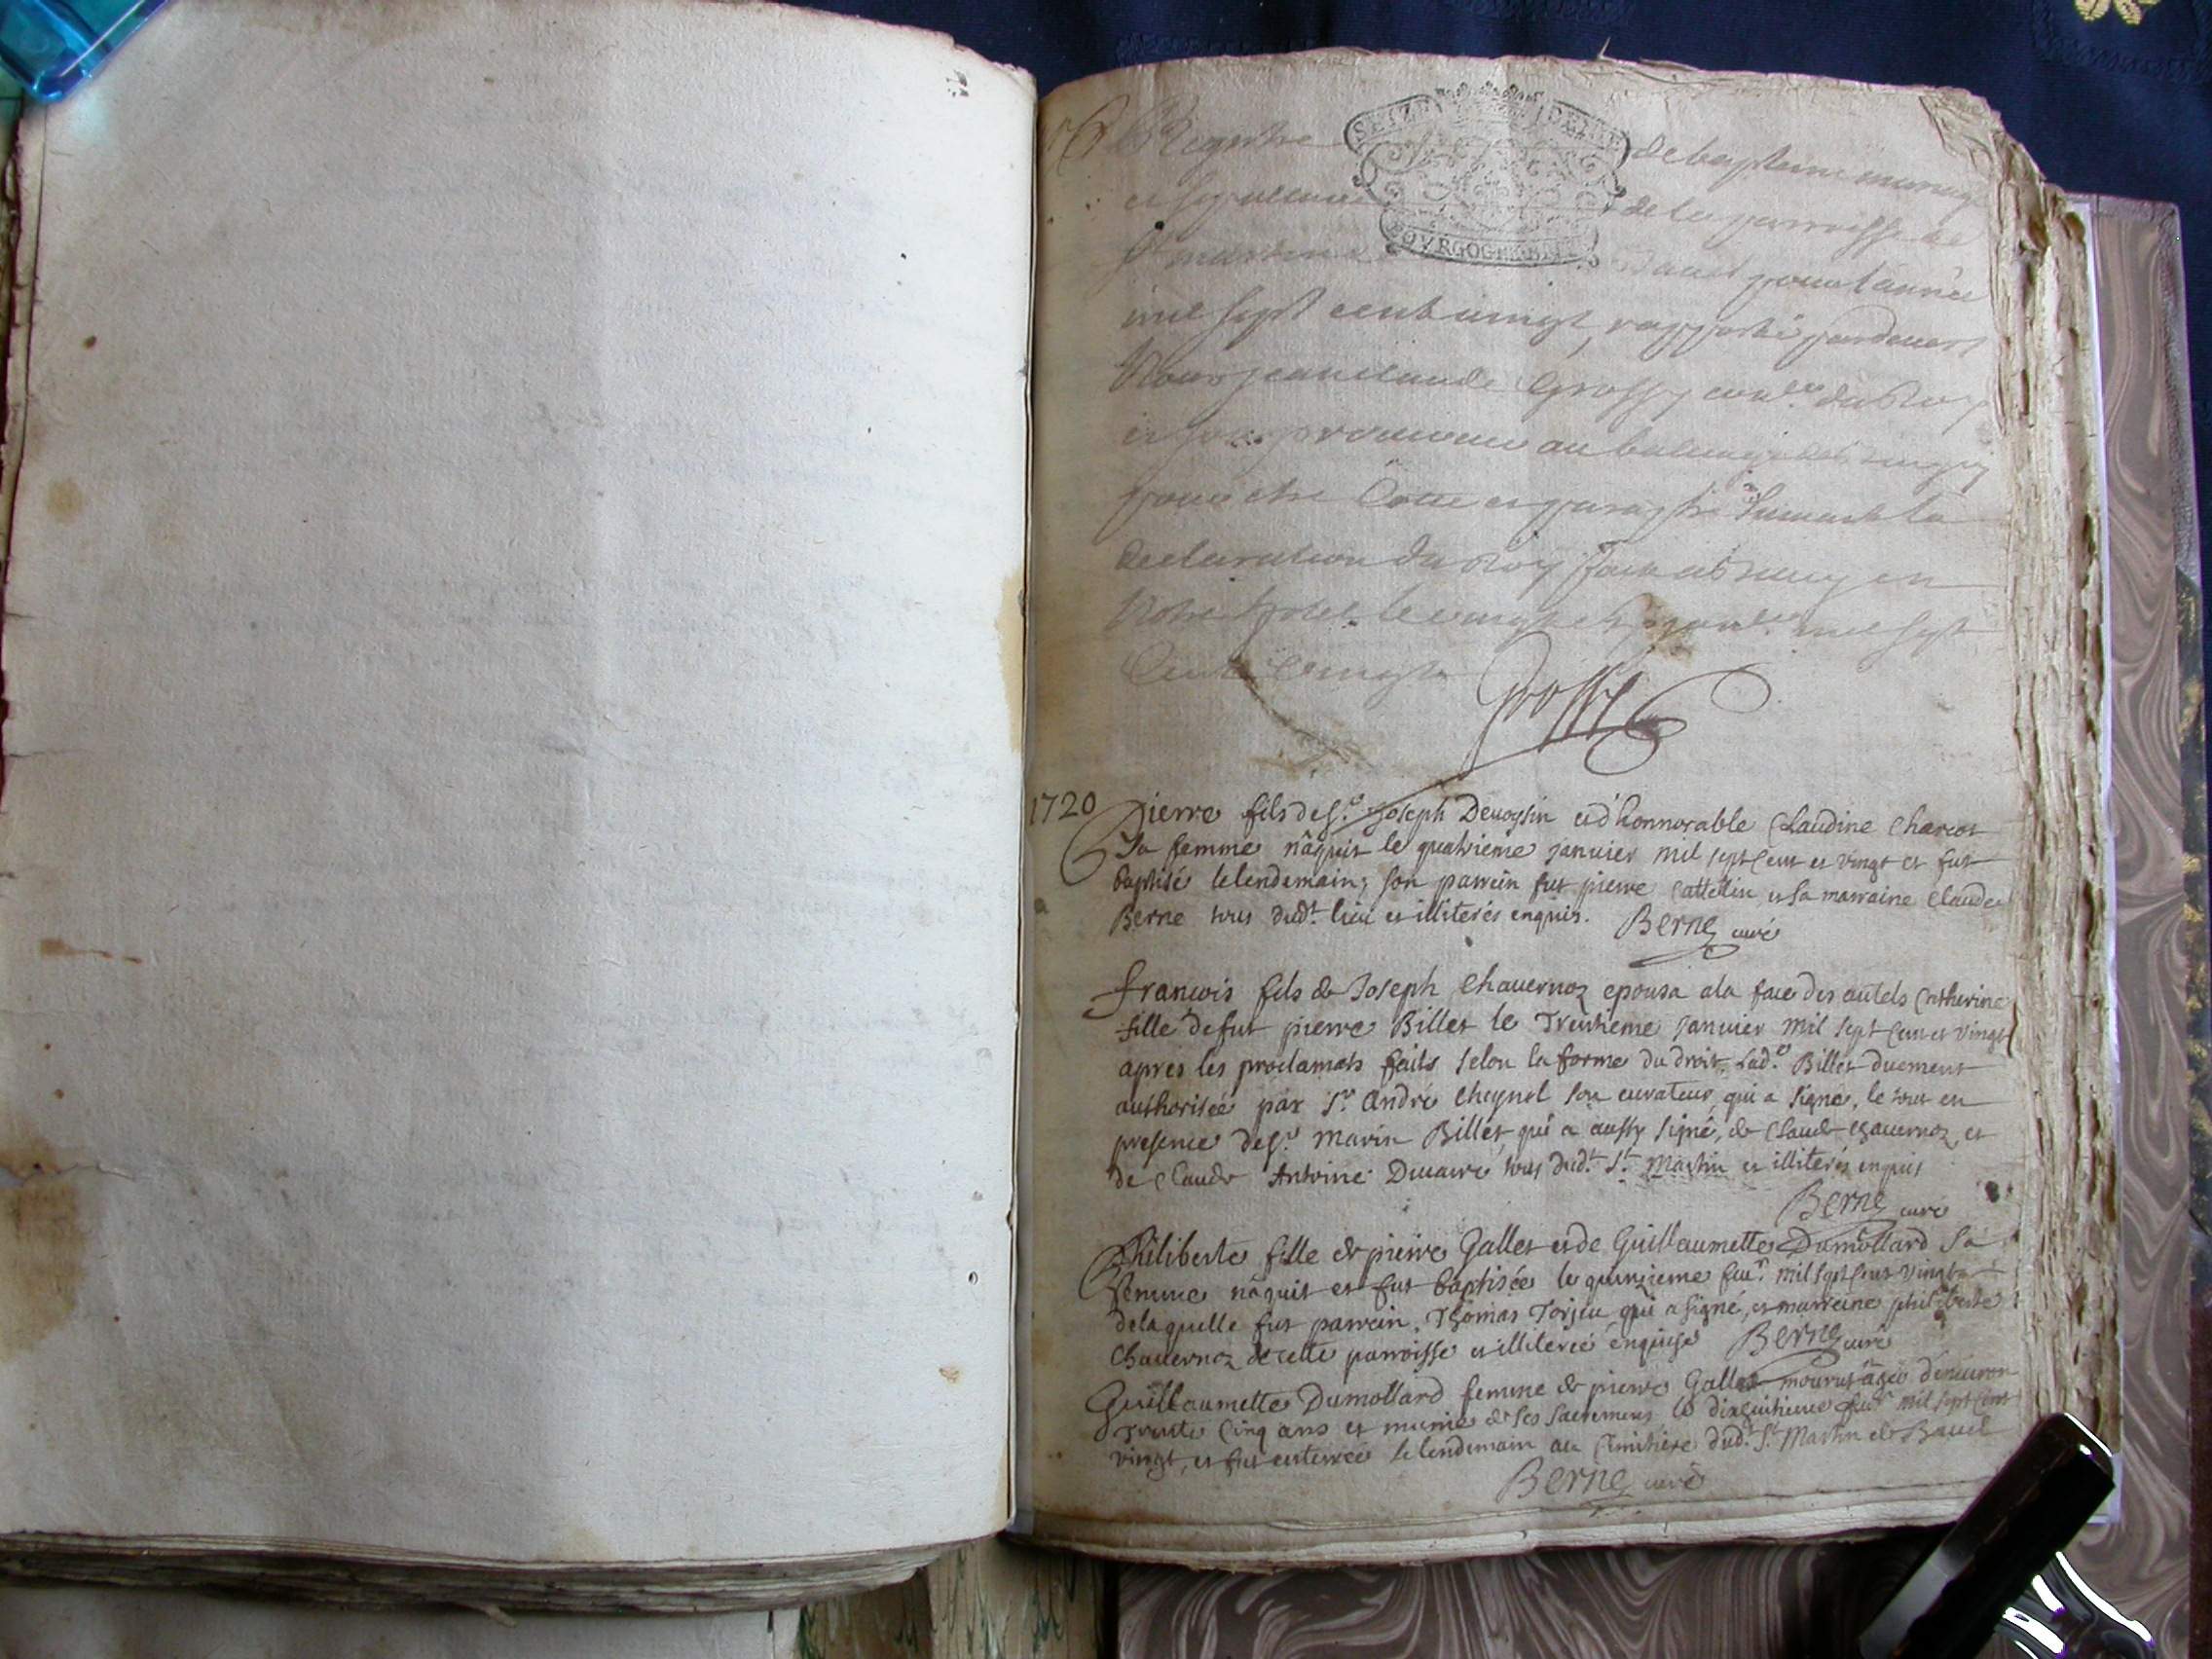 Registre de baptesme mariage
et sepulture de la parroisse de
St martin de Bauel pour l'année
mil sept cent vingt, rapporté pardeuant
Nous jean claude Grossy con.er du Roy
au balliage
pour estre Cotte et paraphé Suiuant la
declaration du Roy fait
Notre hotel le vingt mil sept
Cent Vingt
Grossy
SEIZE DENIE
BOVRGOGNE
1720 Pierre fils de s.r Joseph Deuoysin et d'honnorable Claudine Charcot
Sa femme nâquit le quatrieme januier mil sept Cent et vingt et fut
baptisé le lendemain; son parrein fut pierre Cattellin et sa marraine Claude
Berne tous dud.t lieu et illiterés enquis. Berne curé
francois fils de Joseph Chauernoz epousa a la face des autels Catherine
fille de fut pierre Billet le Trentieme januier mil sept Cent et vingt
apres les proclamats faits selon la forme du droit, Lad.e Billet duement
authorisée par S.r André Cheynel son curateur, qui a signé, le tout en
presence de s.r Marin Billet, qui a aussy signé, de Claude Chauernoz, et
de Claude Antoine Duuivre, tous dud.t S.t Martin et illiterés enquis
Berne curé
Philiberte fille de pierre Gallet et de Guillaumette Dumollard Sa
femme nâquit et fut baptisée le quinzieme feu.r mil sept Cent Vingt
de laquelle fut parrein, Thomas Torjeu, qui a signé, et marreine philiberte
Chauernoz de cette parroisse et illiterée enquise Berne curé
Guillaumette Dumollard femme de pierre Gallet mourut âgée d'enuiron
Trente Cinq ans et munie de ses Sacremens le dixhuitieme feu.r mil sept Cent
vingt, et fut enterrée le lendemain au Cimitiere dud.t S.t Martin de Bauel
Berne curé